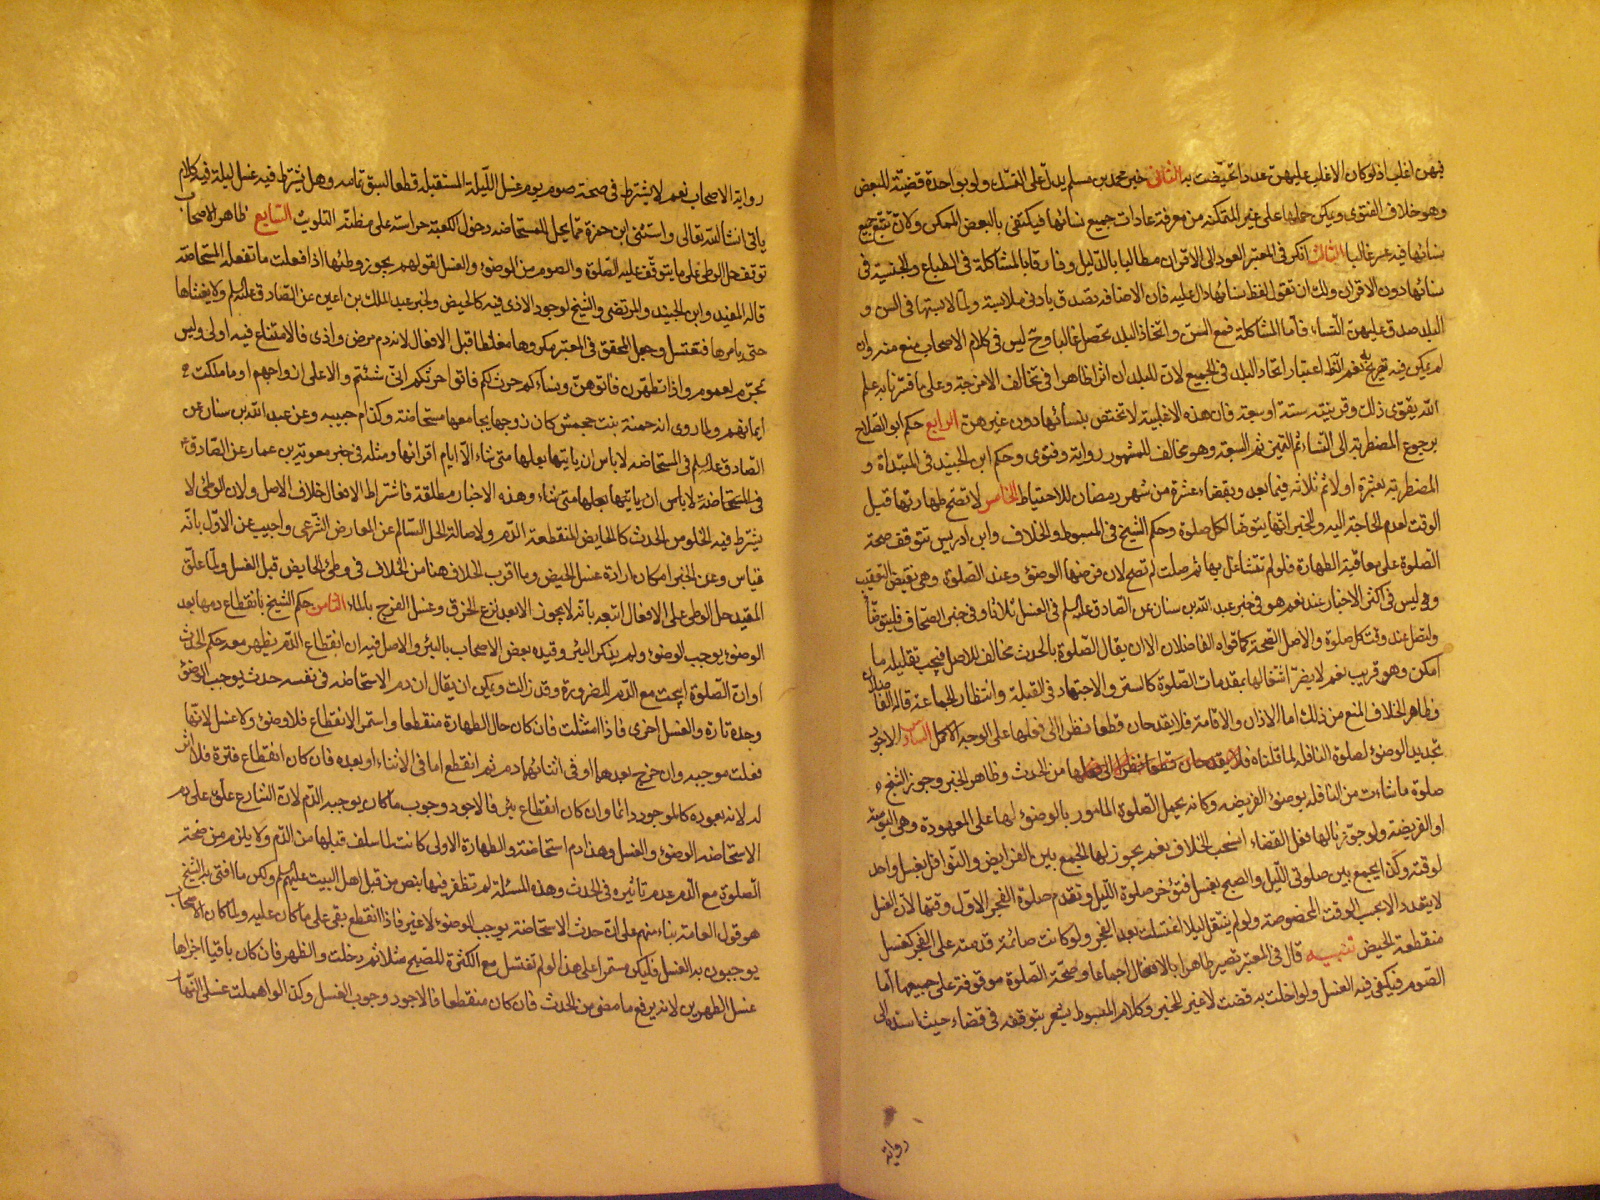 فيهن اغلب اذ لو كان الاغلب عليهن عددا تحيضت به الثاني خبر محمد بن مسلم يدل على التعدد ولو بواحدة قضية للبعض
وهو خلاف الفتوى ويمكن حملها على غير المتمكنة من معرفة عادات جميع نسائها فيكتفى بالبعض الممكن ولان تتبع جميع
نسائها فيه عسر غالبا الثالث انكر في المعتبر العود الى الاقران مطالبا بالدليل وفارقا بالمشاكلة في الطباع والجنسية في
نسائها دون الاقران ولك ان تقول لفظ نسائها دال عليه فان الاضافة تصدق بادنى ملابسة ولما لابستها في السن و
البلد صدق عليهن النساء فاما المشاكلة فمع السن واتحاد البلد تحصل غالبا وح ليس في كلام الاصحاب منع منه وان
لم يكن فيه تصريح به نعم الظ اعتبار اتحاد البلد في الجميع لان للبلدان اثرا ظاهرا في تخالف الامزجة وعلى ما فسرنا به علم
الله يقوى ذلك وقرينته ستة او سبعة فان هذه الاغلبية لا تختص بنسائها دون غيرهن الرابع حكم ابو الصلاح
برجوع المضطربة الى النساء ثم التميز ثم السبعة وهو مخالف للمشهور رواية وفتوى وحكم ابن الجنيد في المبتداة و
المضطربة بعشرة اولا ثم ثلاثة فيما بعد وبقضاء عشرة من شهر رمضان للاحتياط الخامس لا تصح طهارتها قبل
الوقت لعدم الحاجة اليه وللخبر انها يتوضا لكل صلوة وحكم الشيخ في المبسوط والخلاف وابن ادريس بتوقف صحة
الصلوة على معاقبة الطهارة فلو لم تتشاغل بها ثم صلت لم تصح لان فرضها الوضوء وعند الصلوة وهي تقتضي التعقيب
وهو ليس في اكثر الاخبار عند نعم هو في خبر عبد الله بن سنان عن الصادق عليه السلم في الغسل ثلاثا وفي خبر الصحاف فليتوضأ
ولتصل عند وقت كل صلوة والاصل الصحة كما قواه الفاضلان الا ان يقال الصلوة بالحدث مخالف للاصل فيجب تقليله ما
امكن وهو قريب نعم لا يضر اشتغالها بمقدمات الصلوة كالستر والاجتهاد في القبلة وانتظار الجماعة قاله الفاضلان
وظاهر الخلاف المنع من ذلك اما الاذان والاقامة فلا يقدحان قطعا نظرا الى فعلها على الوجه الاكمل السادس الاجود
تجديد الوضوء لصلوة النافلة لما قلناه من الحدث وظاهر الخبر وجوز الشيخ
صلوة ما شاءت من النافلة بوضوء الفريضة وكانه يحمل الصلوة المامور بالوضوء لها على المعهودة وهي اليومية
او الفريضة ولو جوزنا لها فعل القضاء انسحب الخلاف نعم يجوز لها الجمع بين الفرايض والنوافل بغسل واحد
لوقته وكذا يجمع بين صلوتي الليل والصبح بغسل فتؤخر صلوة الليل وتقدم صلوة الفجر الاول وقتها لان الغسل
لا يتعدد الا بحسب الوقت المخصوصة ولو لم يتنفل ليلا اغتسلت بعد الفجر ولو كانت صائمة قدمته على الفجر كغسل
منقطعة الحيض تنبيه قال في المعتبر تصير طاهرا بالافعال اجماعا وصحة الصلوة موقوفة على جميعها اما
الصوم فيكفي فيه الغسل ولو اخلت به قضت لا غير للخبر وكلام المبسوط يشعر بتوقفه في قضاء حيث اسنده الى
رواية
رواية الاصحاب نعم لا يشترط في صحة صوم يوم غسل الليلة المستقبلة قطعا لسبق تمامه وهل يشترط فيه غسل ليلة فيه كلام
ياتي انشاء الله تعالى واستثنى ابن حمزة مما يحل للمستحاضة دخول الكعبة حراسة على مظنة التلويث السابع ظاهر الاصحاب
توقف حل الوطى على ما يتوقف عليه الصلوة والصوم من الوضوء والغسل لقولهم يجوز وطئها اذا فعلت ما تفعله المستحاضة
قاله المفيد وابن الجنيد والمرتضى والشيخ لوجود الاذى فيه كالحيض ولخبر عبد الملك بن اعين عن الصادق عليه السلم ولا يغشاها
حتى يامرها فتغتسل وجعل المحقق في المعتبر مكروها مغلظا قبل الافعال لانه دم مرض واذى فالامتناع فيه اولى وليس
بمحرم لعموم واذا تطهرن فاتوهن ونساؤكم حرث لكم فاتوا حرثكم انى شئتم والا على ازواجهم او ما ملكت
ايمانهم ولما روى ان حمنة بنت جحش كان زوجها يجامعها مستحاضة وكذا ام حبيبة وعن عبد الله بن سنان عن
الصادق عليه السلم في المستحاضة لا باس ان ياتيها بعلها متى شاء الا ايام اقرائها ومثله في خبر معوية بن عمار عن الصادق
في المستحاضة لا باس ان ياتيها بعلها متى شاء وهذه الاخبار مطلقة فاشتراط الافعال خلاف الاصل ولان الوطئ لا
يشترط فيه الخلو من الحدث كالحايض المنقطعة الدم ولاصالة الحل السالم عن المعارض الشرعي واجيب عن الاول بانه
قياس وعن الخبر امكان ارادة غسل الحيض وما اقرب الخلاف هنا من الخلاف في وطئ الحايض قبل الغسل ولما علق
المفيد حل الوطى على الافعال اتبعه بانه لا يجوز الا بعد نزع الخرق وغسل الفرج بالماء الثامن حكم الشيخ بانقطاع دمها بعد
الوضوء يوجب الوضوء ولم يذكر البرء وقيده بعض الاصحاب بالبرء والاصل فيه ان انقطاع الدم يظهر معه حكم الحدث
او ان الصلوة ابيحت مع الدم للضرورة وقد زالت ويمكن ان يقال ان دم الاستحاضة في نفسه حدث يوجب الوضوء
وحده تارة والغسل اخرى فاذا امتثلت فان كان حال الطهارة منقطعا واستمر الانقطاع فلا وضوء ولا غسل لانها
فعلت موجبه وان خرج بعدهما او في اثنائهما دم ثم انقطع اما في الاثناء او بعده فان كان انقطاع فترة فلا اثر
له لانه بعوده كالموجود دائما وان كان انقطاع برء فالاجود وجوب ما كان يوجبه الدم لان الشارع علق على دم
الاستحاضة الوضوء والغسل وهذا دم استحاضة والطهارة الاولى كانت لما سلف قبلها من الدم ولا يلزم من صحة
الصلوة مع الدم عدم تاثيره في الحدث وهذه المسئلة لم تظفر فيها بنص من قبل اهل البيت عليهم السلم ولكن ما افتى به الشيخ
هو قول العامة بناء منهم على ان حدث الاستحاضة يوجب الوضوء لا غير فاذا انقطع بقى على ما كان عليه ولما كان الاصحاب
يوجبون به الغسل فليكن مستمرا على هذا لو لم تغتسل مع الكثرة للصبح مثلا ثم دخلت والظهر فان كان باقيا اجزاها
غسل الظهرين لانه يرفع ما مضى من الحدث فان كان منقطعا فالاجود وجوب الغسل وكذا لو اهملت غسلي النهار